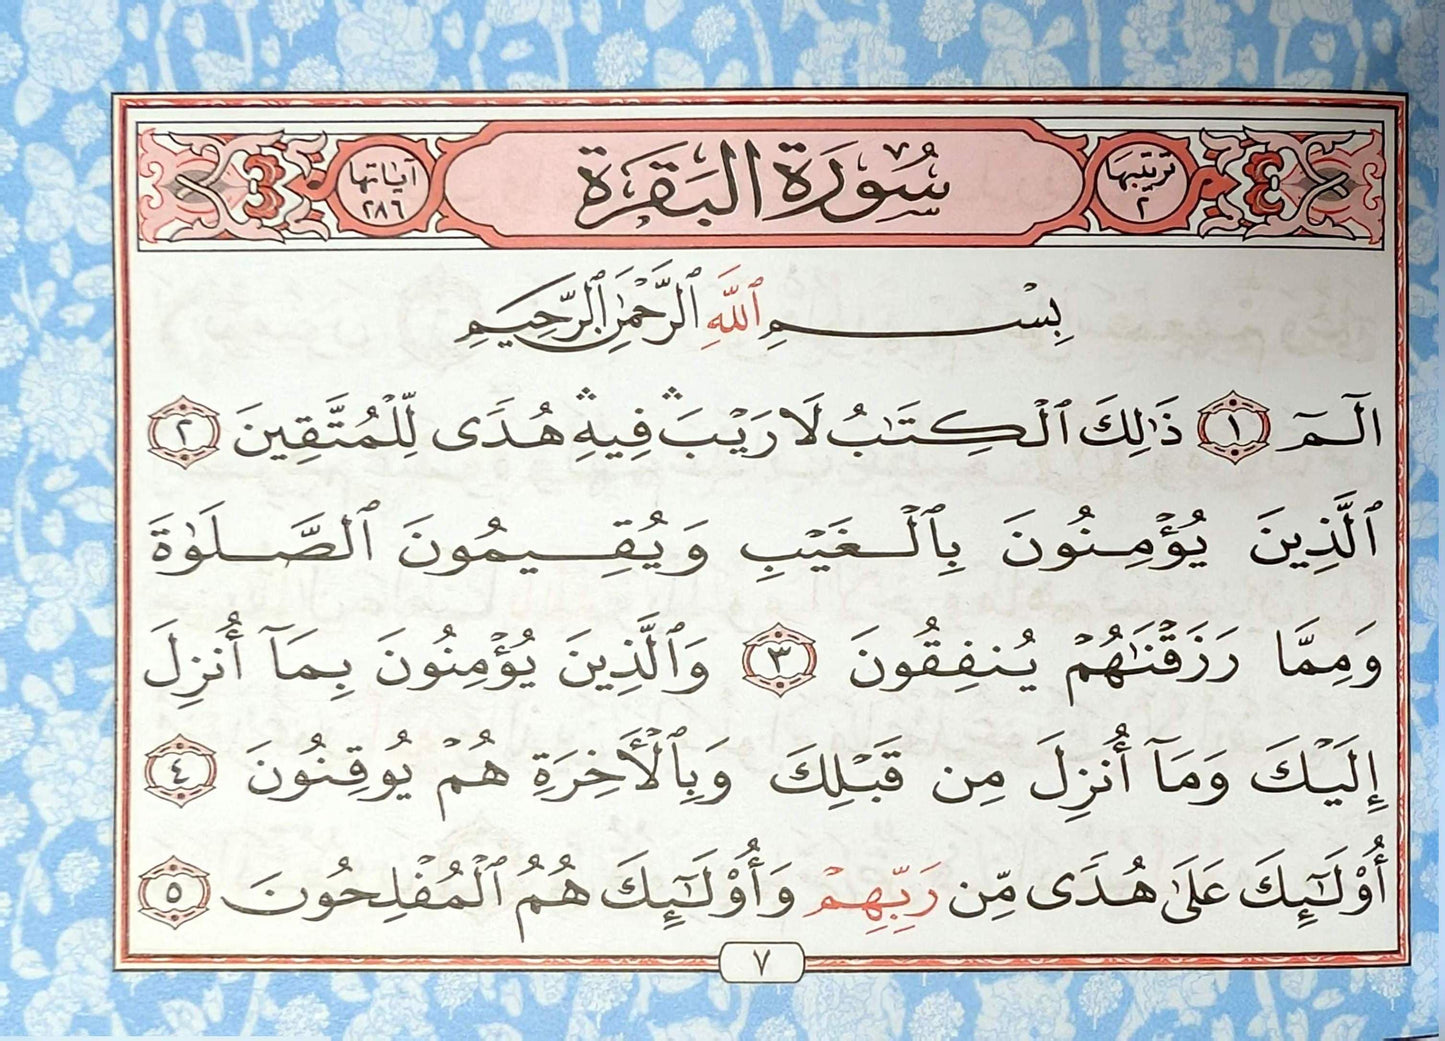 ترتيبها
٢
سُورَةُ البَقَرَةِ
آياتها
٢٨٦
بِسْمِ ٱللَّهِ ٱلرَّحْمَٰنِ ٱلرَّحِيمِ
الٓمٓ ١ ذَٰلِكَ ٱلْكِتَٰبُ لَا رَيْبَ ۛ فِيهِ ۛ هُدًى لِّلْمُتَّقِينَ ٢
ٱلَّذِينَ يُؤْمِنُونَ بِٱلْغَيْبِ وَيُقِيمُونَ ٱلصَّلَوٰةَ
وَمِمَّا رَزَقْنَٰهُمْ يُنفِقُونَ ٣ وَٱلَّذِينَ يُؤْمِنُونَ بِمَآ أُنزِلَ
إِلَيْكَ وَمَآ أُنزِلَ مِن قَبْلِكَ وَبِٱلْأَخِرَةِ هُمْ يُوقِنُونَ ٤
أُو۟لَٰٓئِكَ عَلَىٰ هُدًى مِّن رَبِّهِمْ وَأُو۟لَٰٓئِكَ هُمُ ٱلْمُفْلِحُونَ ٥
٧